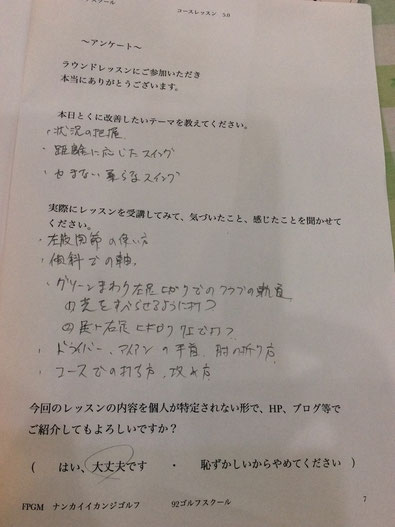 スクール
コースレッスン 5.0
～アンケート～
ラウンドレッスンにご参加いただき
本当にありがとうございます。
本日とくに改善したいテーマを教えてください。
・状況の把握
・距離に応じたスイング
・せまない 乗らなスイング
実際にレッスンを受講してみて、気づいたこと、感じたことを聞かせて
ください。
・左股関節の使い方
・傾斜での軸
・グリーンまわり左足上がりでのクラブの軌道
芝をすべらせるように打つ
右足
・ドライバー、アイアンの手首、肘の折り方
・コースでの打ち方、攻め方
今回のレッスンの内容を個人が特定されない形で、HP、ブログ等で
ご紹介してもよろしいですか？
（ はい、大丈夫です ・ 恥ずかしいからやめてください ）
FPGM ナンカイイカンジゴルフ 92ゴルフスクール 7